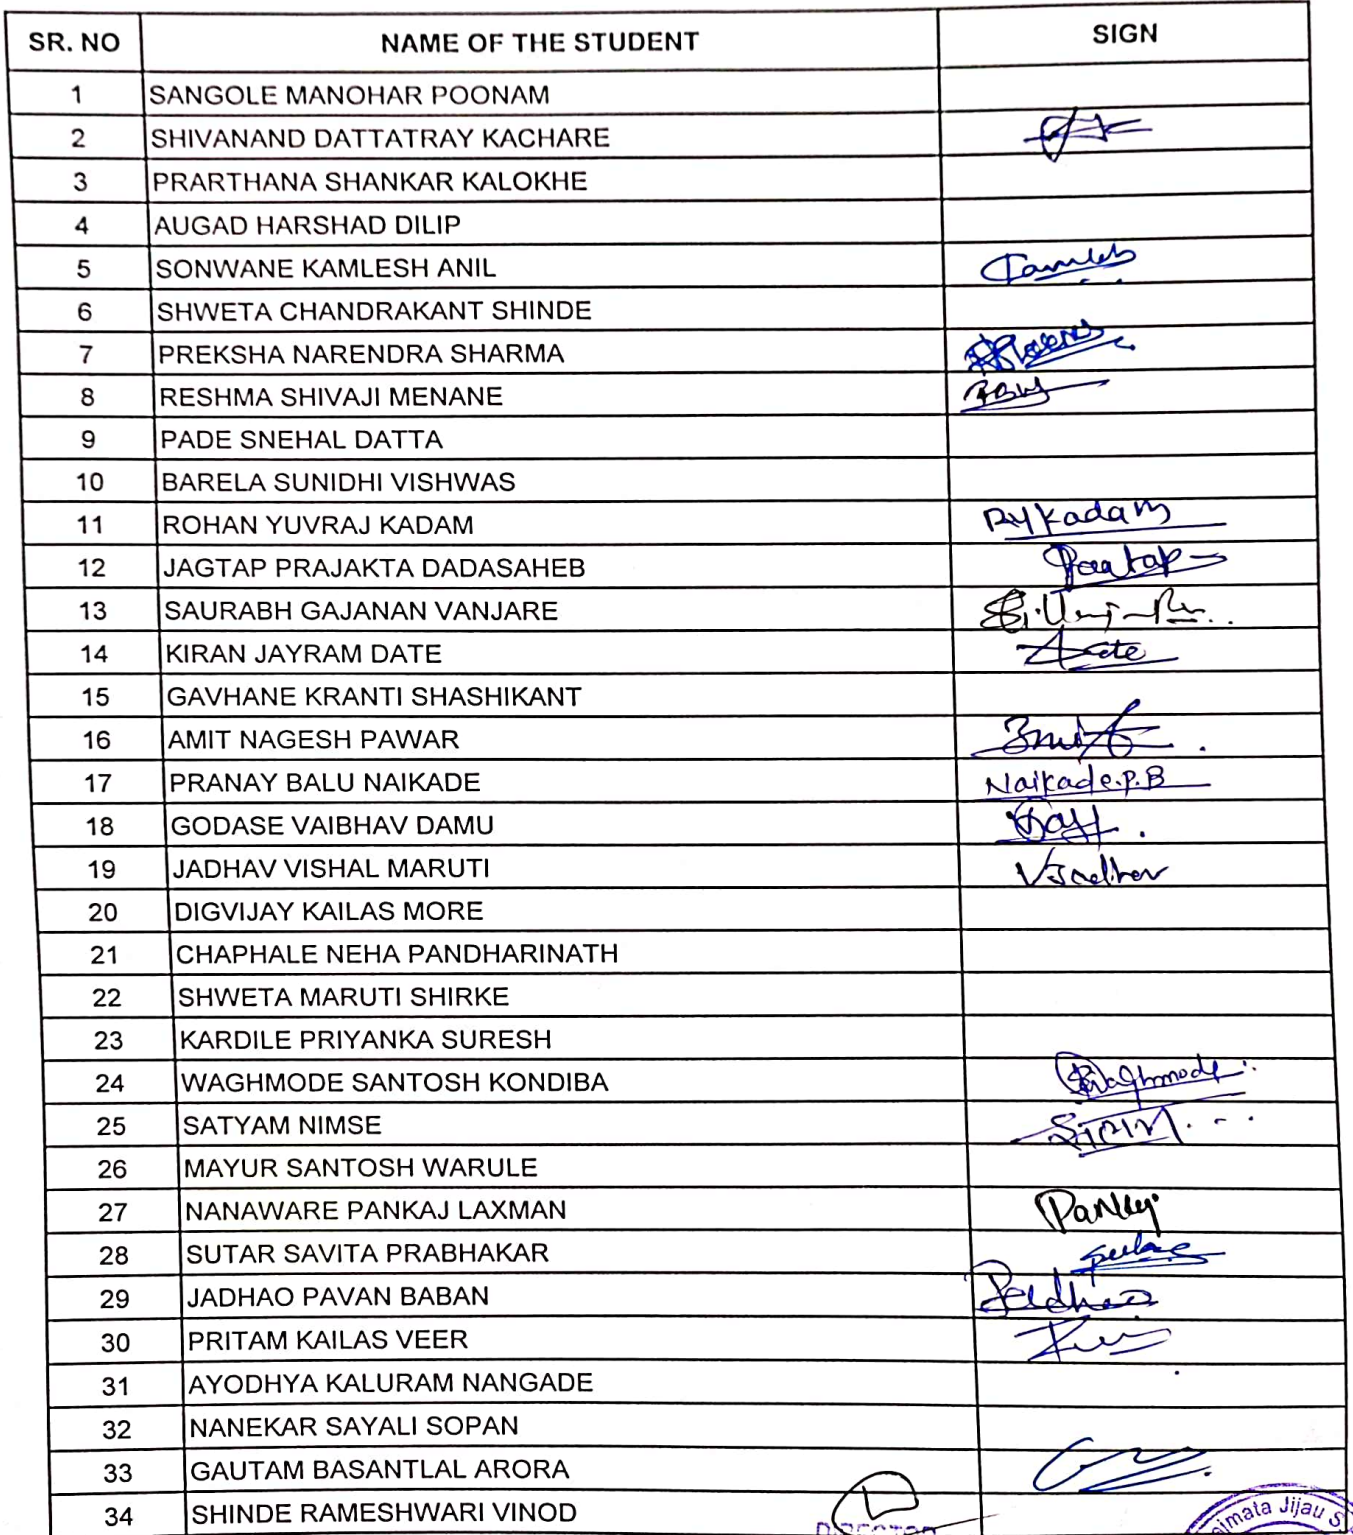 SR. NO NAME OF THE STUDENT SIGN
1 SANGOLE MANOHAR POONAM
2 SHIVANAND DATTATRAY KACHARE
3 PRARTHANA SHANKAR KALOKHE
4 AUGAD HARSHAD DILIP
5 SONWANE KAMLESH ANIL
6 SHWETA CHANDRAKANT SHINDE
7 PREKSHA NARENDRA SHARMA
8 RESHMA SHIVAJI MENANE
9 PADE SNEHAL DATTA
10 BARELA SUNIDHI VISHWAS
11 ROHAN YUVRAJ KADAM RYKadam
12 JAGTAP PRAJAKTA DADASAHEB
13 SAURABH GAJANAN VANJARE
14 KIRAN JAYRAM DATE
15 GAVHANE KRANTI SHASHIKANT
16 AMIT NAGESH PAWAR
17 PRANAY BALU NAIKADE Naikade.P.B
18 GODASE VAIBHAV DAMU
19 JADHAV VISHAL MARUTI VJadhav
20 DIGVIJAY KAILAS MORE
21 CHAPHALE NEHA PANDHARINATH
22 SHWETA MARUTI SHIRKE
23 KARDILE PRIYANKA SURESH
24 WAGHMODE SANTOSH KONDIBA SWaghmode
25 SATYAM NIMSE
26 MAYUR SANTOSH WARULE
27 NANAWARE PANKAJ LAXMAN Pankaj
28 SUTAR SAVITA PRABHAKAR
29 JADHAO PAVAN BABAN
30 PRITAM KAILAS VEER
31 AYODHYA KALURAM NANGADE
32 NANEKAR SAYALI SOPAN
33 GAUTAM BASANTLAL ARORA
34 SHINDE RAMESHWARI VINOD
Jijau